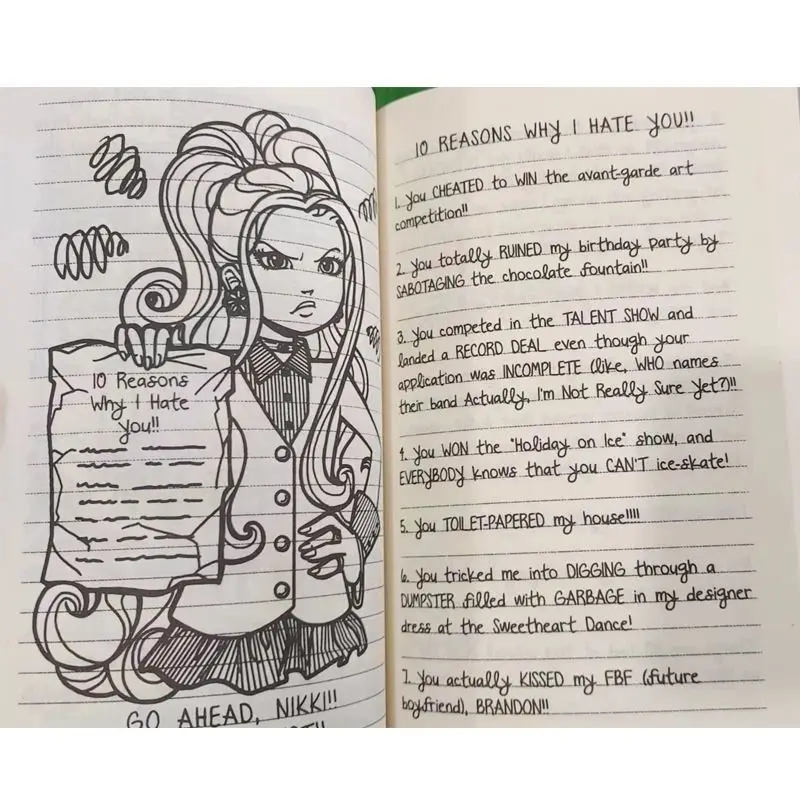 10 Reasons
Why I Hate
you!!
GO AHEAD, NIKKI!!
10 REASONS WHY I HATE YOU!!
1. You CHEATED to WIN the avant-garde art
competition!!
2. You totally RUINED my birthday party by
SABOTAGING the chocolate fountain!!
3. You competed in the TALENT SHOW and
landed a RECORD DEAL even though your
application was INCOMPLETE (like, WHO names
their band Actually, I'm Not Really Sure Yet?)!!
4. You WON the "Holiday on Ice" show, and
EVERYBODY knows that you CAN'T ice-skate!
5. You TOILET-PAPERED my house!!!!
6. You tricked me into DIGGING through a
DUMPSTER filled with GARBAGE in my designer
dress at the Sweetheart Dance!
7. You actually KISSED my FBF (future
boyfriend), BRANDON!!